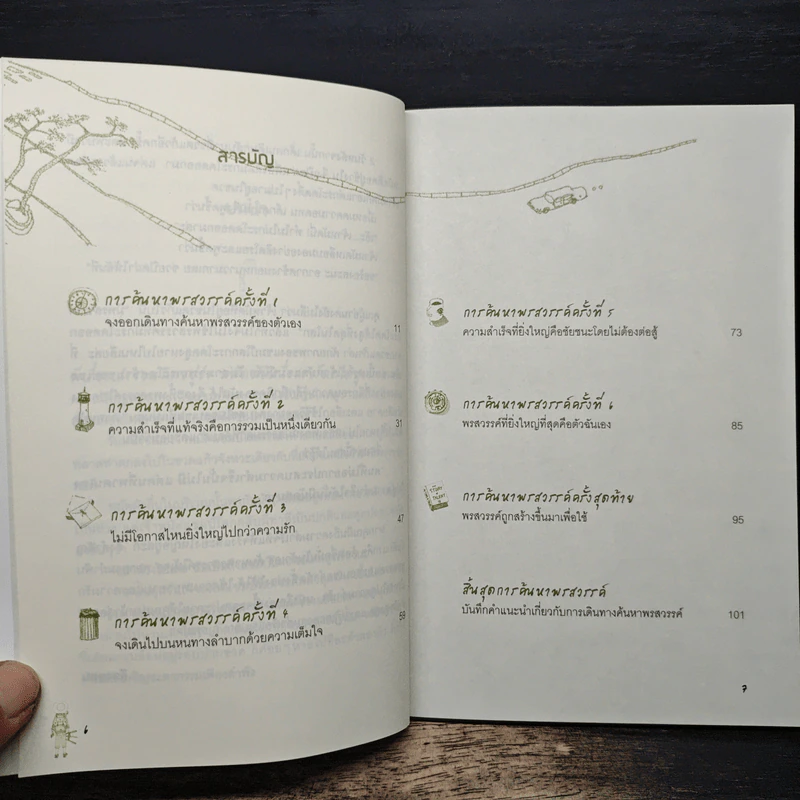 สารบัญ
การค้นหาพรสวรรค์ครั้งที่ 1
จงออกเดินทางค้นหาพรสวรรค์ของตัวเอง 11
การค้นหาพรสวรรค์ครั้งที่ 2
ความสำเร็จที่แท้จริงคือการรวมเป็นหนึ่งเดียวกัน 31
การค้นหาพรสวรรค์ครั้งที่ 3
ไม่มีโอกาสไหนยิ่งใหญ่ไปกว่าความรัก 47
การค้นหาพรสวรรค์ครั้งที่ 4
จงเดินไปบนหนทางลำบากด้วยความเต็มใจ 59
6
การค้นหาพรสวรรค์ครั้งที่ 5
ความสำเร็จที่ยิ่งใหญ่คือชัยชนะโดยไม่ต้องต่อสู้ 73
การค้นหาพรสวรรค์ครั้งที่ 6
พรสวรรค์ที่ยิ่งใหญ่ที่สุดคือตัวฉันเอง 85
การค้นหาพรสวรรค์ครั้งสุดท้าย
พรสวรรค์ถูกสร้างขึ้นมาเพื่อใช้ 95
สิ้นสุดการค้นหาพรสวรรค์
บันทึกคำแนะนำเกี่ยวกับการเดินทางค้นหาพรสวรรค์ 101
7